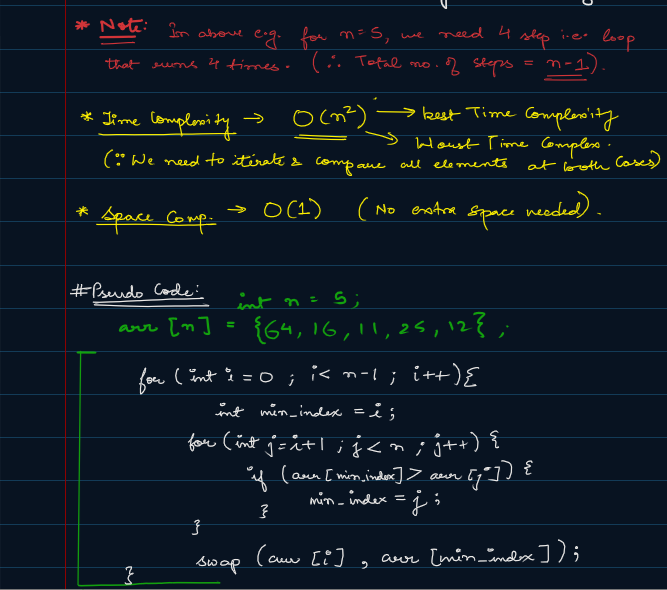 * Note: In above e.g. for n=5, we need 4 step i.e. loop
that runs 4 times. (∴ Total no. of steps = n-1).
* Time Complexity → O(n²) → best Time Complexity
→ Worst Time Complex.
(∵ We need to iterate & compare all elements at both cases)
* Space Comp. → O(1) (No extra space needed).
# Pseudo Code:
int n = 5;
arr [n] = {64, 16, 11, 25, 12};
for (int i = 0 ; i < n-1 ; i++){
int min_index = i;
for (int j=i+1 ; j < n ; j++) {
if (arr [min_index] > arr [j]) {
min_index = j;
}
}
swap (arr [i] , arr [min_index]);
}